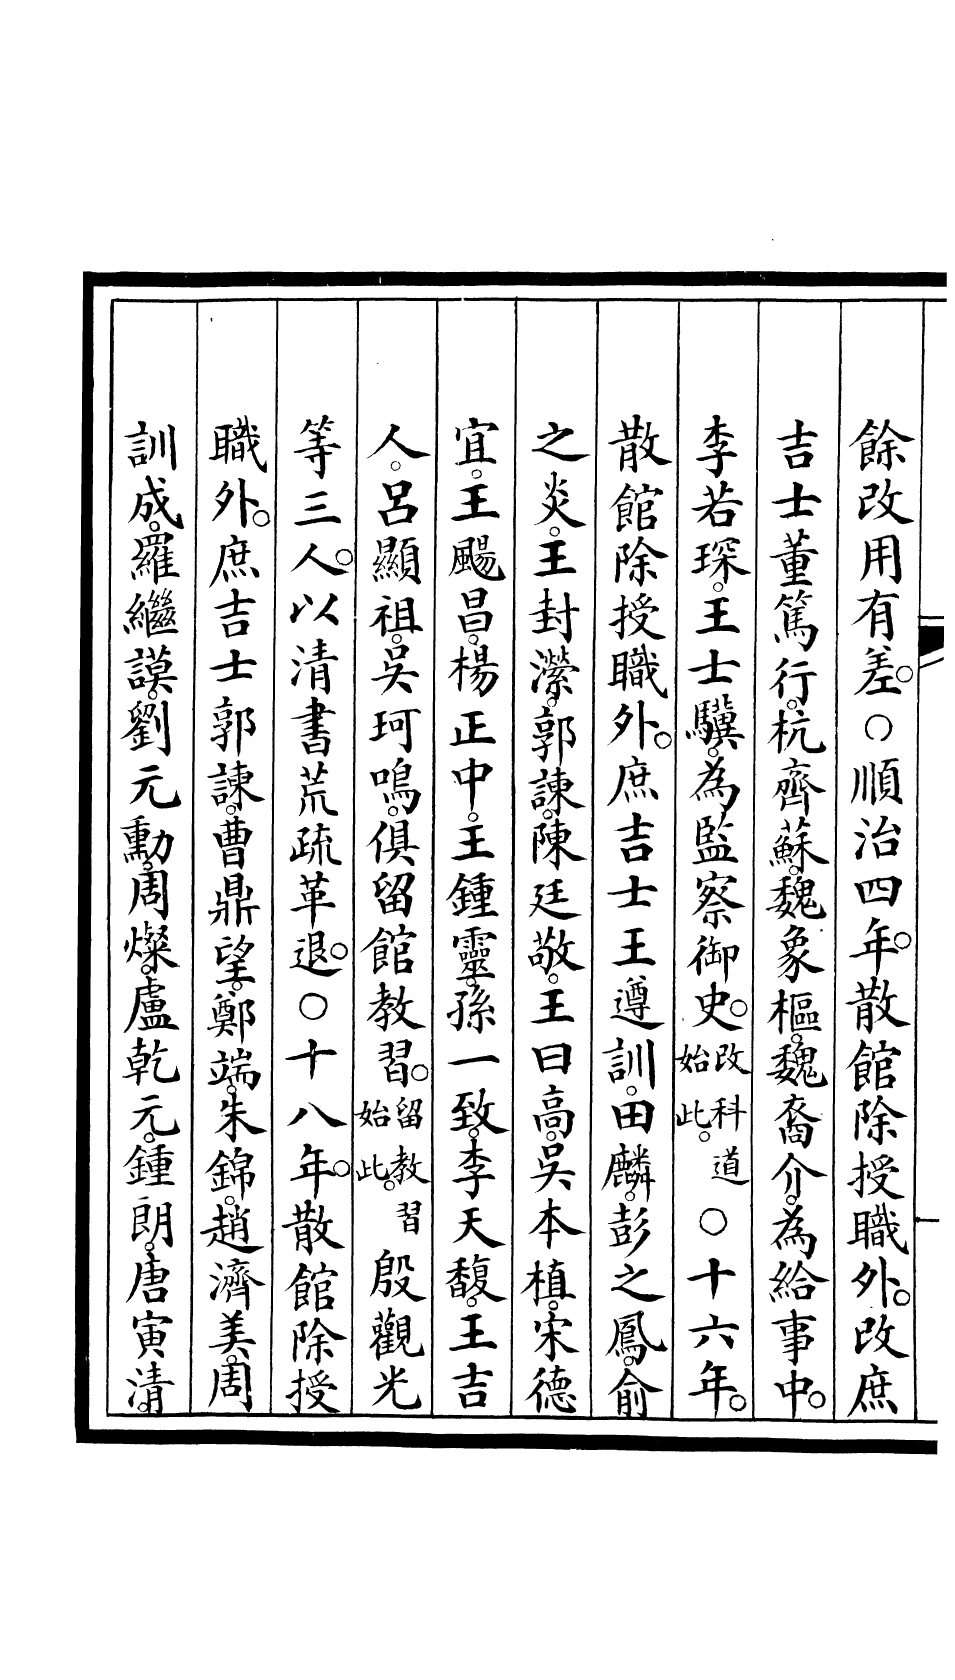 餘改用有差。○順治四年。散館除授職外。改庶
吉士董篤行。杭齊蘇。魏象樞。魏裔介。為給事中。
李若琛。王士驥。為監察御史。改科道始此。○十六年。
散館除授職外。庶吉士王遵訓。田麟。彭之鳳。俞
之炎。王封濚。郭諫。陳廷敬。王曰高。吳本植。宋德
宜。王颺昌。楊正中。王鍾靈。孫一致。李天馥。王吉
人。呂顯祖。吳珂鳴。俱留館教習。留教習始此。殷觀光
等三人。以清書荒疏革退。○十八年。散館除授
職外。庶吉士郭諫。曹鼎望。鄭端。朱錦。趙濟美。周
訓成。羅繼謨。劉元勳。周燦。盧乾元。鍾朗。唐寅清。